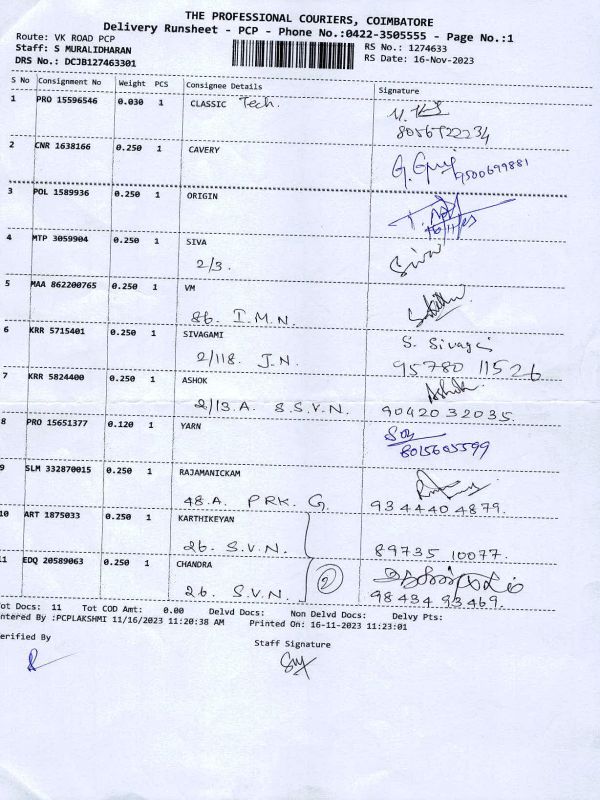 THE PROFESSIONAL COURIERS, COIMBATORE
Delivery Runsheet - PCP - Phone No.:0422-3505555 - Page No.:1
Route: VK ROAD PCP
Staff: S MURALIDHARAN RS No.: 1274633
DRS No.: DCJB127463301 RS Date: 16-Nov-2023
S No Consignment No Weight PCS Consignee Details Signature
1 PRO 15596546 0.030 1 CLASSIC Tech.
8056722234
2 CNR 1638166 0.250 1 CAVERY
9500699881
3 POL 1589936 0.250 1 ORIGIN
16/11/23
4 MTP 3059904 0.250 1 SIVA Siva
2/3.
5 MAA 862200765 0.250 1 VM
86. I.M.N.
6 KRR 5715401 0.250 1 SIVAGAMI S. Sivagei
2/118. J.N. 95780 11526
7 KRR 5824400 0.250 1 ASHOK Ashok
2/13.A. S.S.V.N. 9042032035.
8 PRO 15651377 0.120 1 YARN
8015605599
9 SLM 332870015 0.250 1 RAJAMANICKAM
48.A. PRK. G. 934440 4879.
10 ART 1875033 0.250 1 KARTHIKEYAN
26. S.V.N. 89735 10077.
11 EDQ 20589063 0.250 1 CHANDRA
26. S.V.N. 2 98434 93469.
Tot Docs: 11 Tot COD Amt: 0.00 Delvd Docs: Non Delvd Docs: Delvy Pts:
Entered By :PCPLAKSHMI 11/16/2023 11:20:38 AM Printed On: 16-11-2023 11:23:01
Verified By Staff Signature